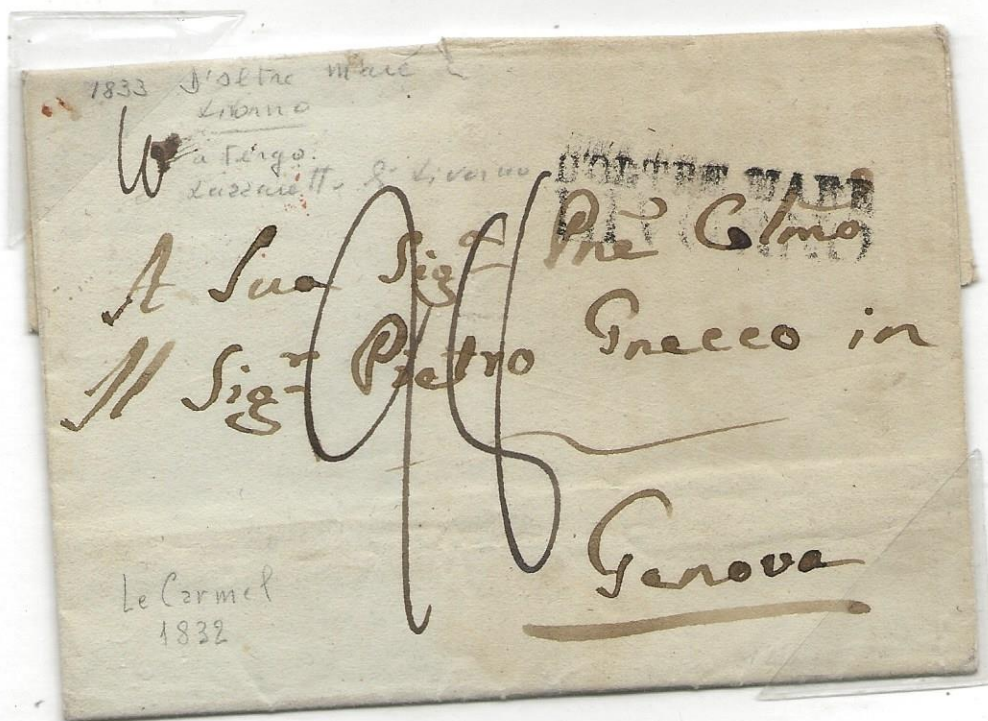 1833 D'oltre mare
Livorno
a tergo.
Lazzaretto di Livorno
D'OLTRE MARE
A Sua Sigª Pne Colmo
Il Sigʳ Pietro Gnecco in
Genova
Le Carmel
1832